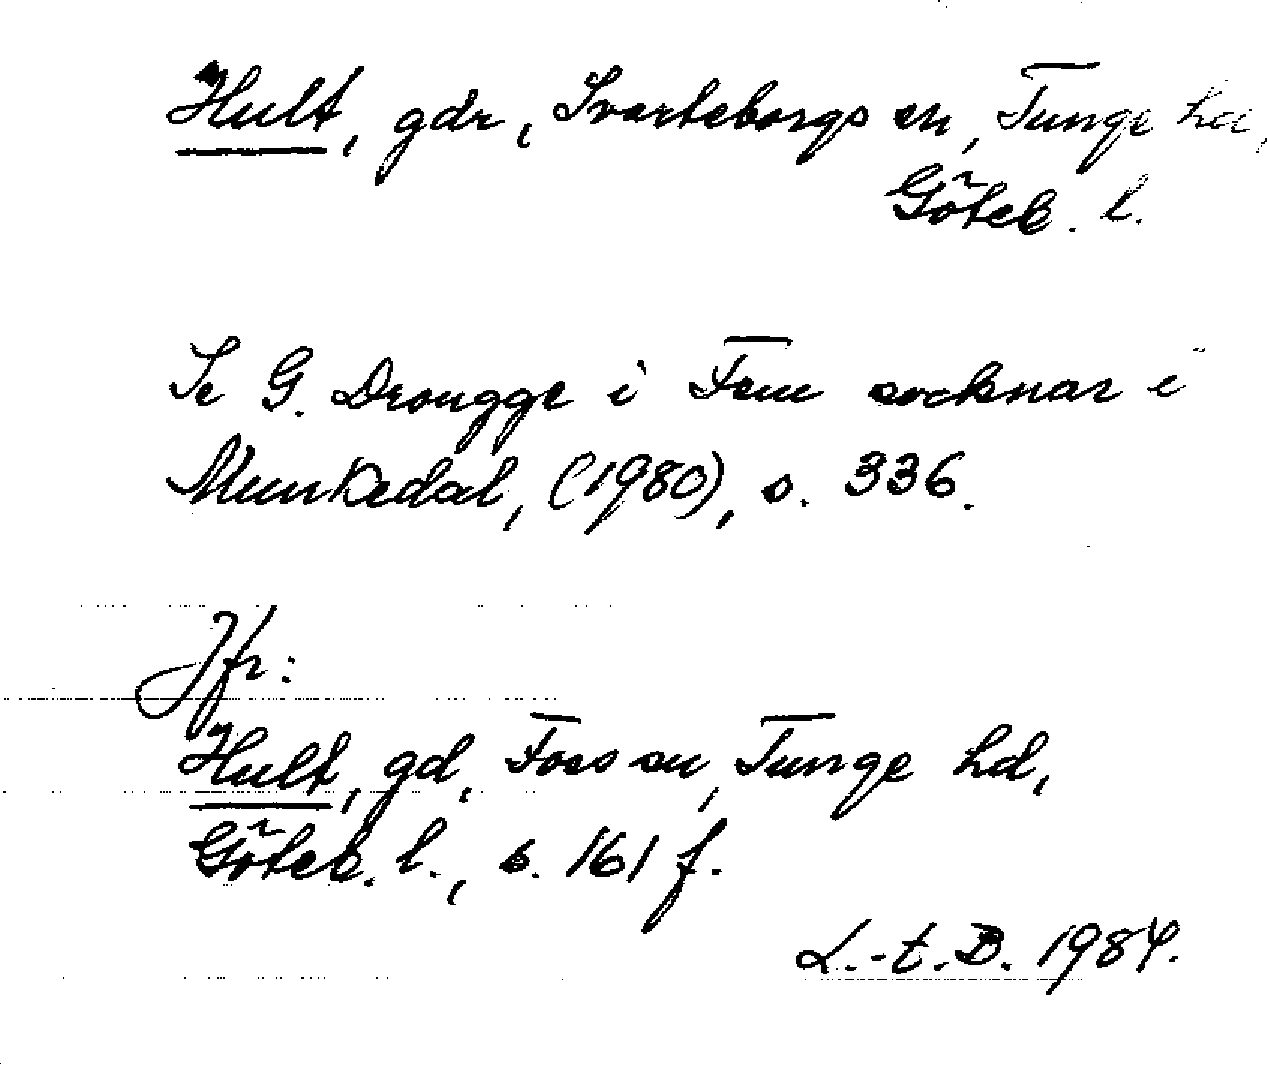 Hult, gdr, Svarteborgs sn, Tunge hd,
Göteb. l.
Se G. Drougge i Fem socknar i
Munkedal, (1980), s. 336.
Jfr:
Hult, gd, Foss sn, Tunge hd,
Göteb. l., s. 161 f.
L.-t. B. 1984.